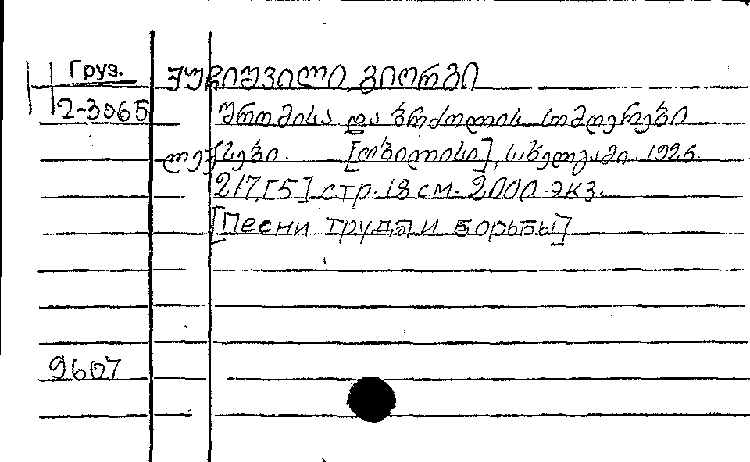 Груз. ქუჩიშვილი გიორგი
2-3065 შრომისა და ბრძოლის სიმღერები
ლექსები. [თბილისი], სახელგამი. 1925.
217, [5] стр. 18 см. 2000 экз.
[Песни труда и борьбы]
9607